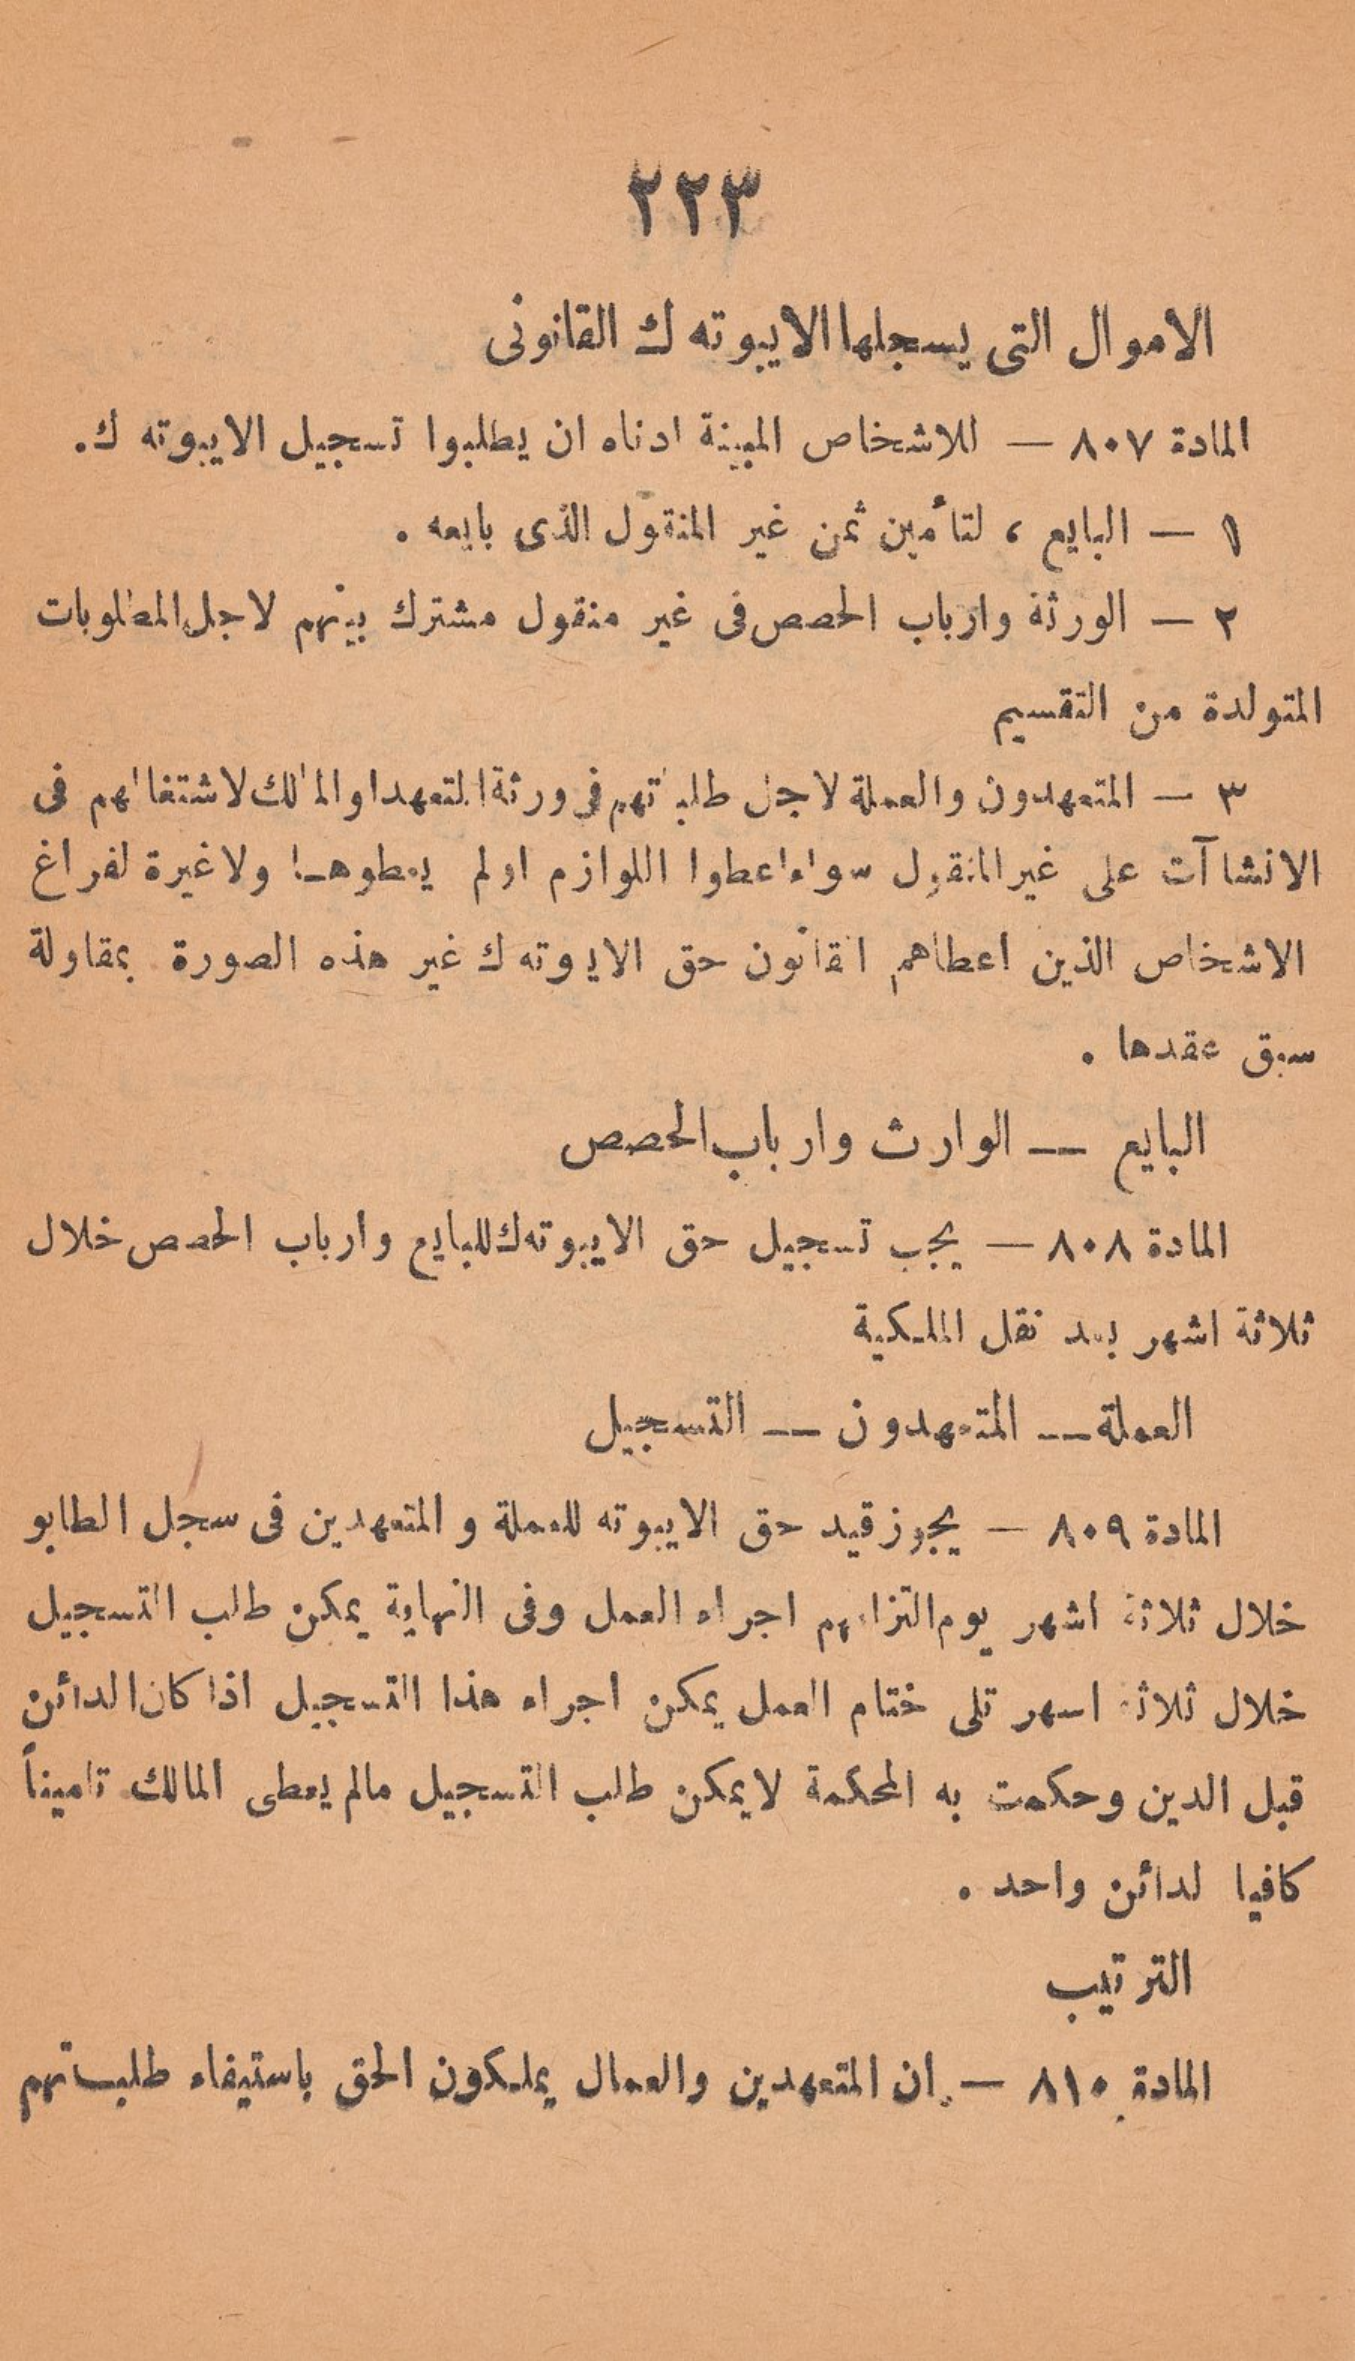 ٢٢٣
الاموال التى يسجلها الايبوته ك القانونى
المادة ٨٠٧ — للاشخاص المبينة ادناه ان يطلبوا تسجيل الايبوته ك.
١ — البايع ، لتأمين ثمن غير المنقول الذى بايعه .
٢ — الورثة وارباب الحصص فى غير منقول مشترك بينهم لاجل المطلوبات
المتولدة من التقسيم
٣ — المتعهدون والعملة لاجل طلباتهم فى ورثة المتعهد او المالك لاشتغالهم فى
الانشاآت على غير المنقول سواء اعطوا اللوازم اولم يعطوهـا ولاغيرة لفراغ
الاشخاص الذين اعطاهم القانون حق الايبوته ك غير هذه الصورة بمقاولة
سبق عقدها .
البايع — الوارث وارباب الحصص
المادة ٨٠٨ — يجب تسجيل حق الايبوته ك للبايع وأرباب الحصص خلال
ثلاثة اشهر بعد نقل الملـكية
العملة — المتعهدون — التسجيل
المادة ٨٠٩ — يجوز قيد حق الايبوته للعملة و المتعهدين فى سجل الطابو
خلال ثلاثة اشهر يوم التزامهم اجراء العمل وفى النهاية يمكن طلب التسجيل
خلال ثلاثة اسهر تلى ختام العمل يمكن اجراء هذا التسجيل اذا كان الدائن
قبل الدين وحكمت به المحكمة لايمكن طلب التسجيل مالم يعطى المالك تاميناً
كافيا لدائن واحد .
الترتيب
المادة ٨١٠ — ان المتعهدين والعمال يملـكون الحق باستيفاء طلبـاتهم